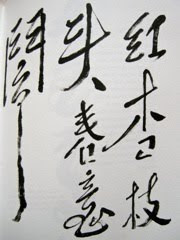 红杏枝
头春意
鬧